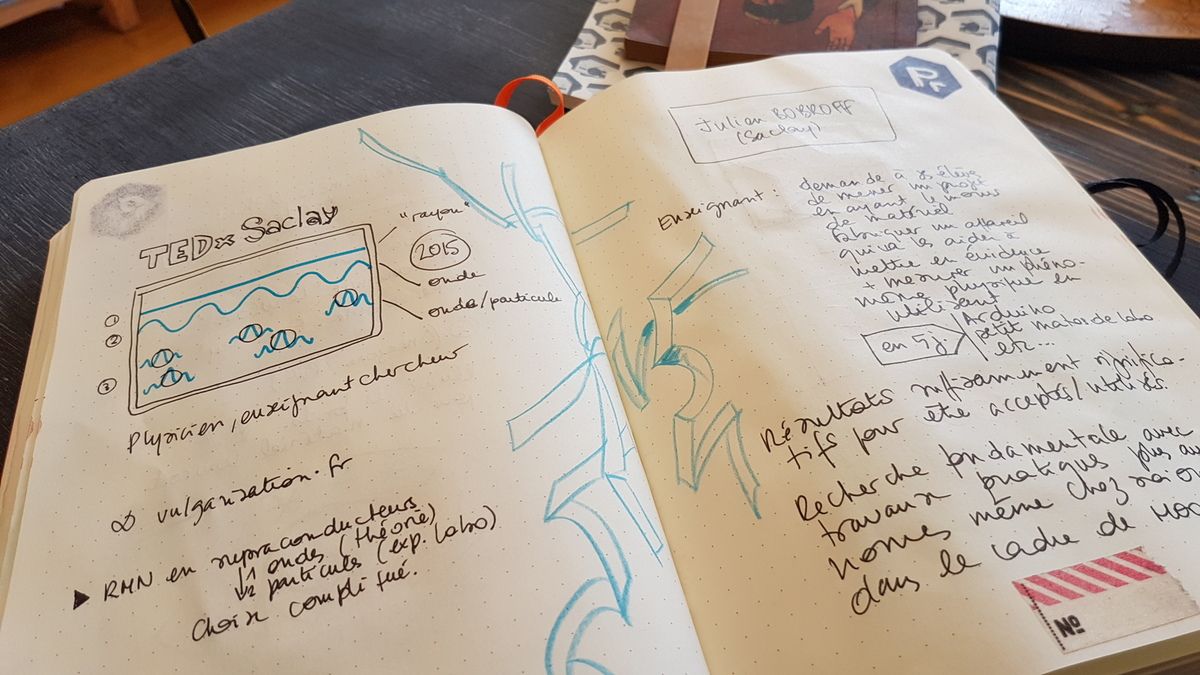 TEDx Saclay
"rayon"
2015
onde
onde/particule
①
②
③
Physicien, enseignant chercheur
vulgarisation.fr
RMN en supraconducteurs
ondes (théorie)
1
2
particules (exp. labo)
Choix compliqué.
Julien BOBROFF
(Saclay)
Enseignant :
demande à ses élèves
de mener un projet
en ayant le moins
de matériel
fabriquer un appareil
qui va les aider à
mettre en évidence
+ mesurer un phéno-
mène physique en
utilisant
Arduino
petit matos de labo
etc...
en 5j
Résultats suffisamment significa-
tifs pour être acceptés/utilisés.
Recherche fondamentale avec
travaux pratiques plus au
nomes même chez soi ou
dans le cadre de
Nº